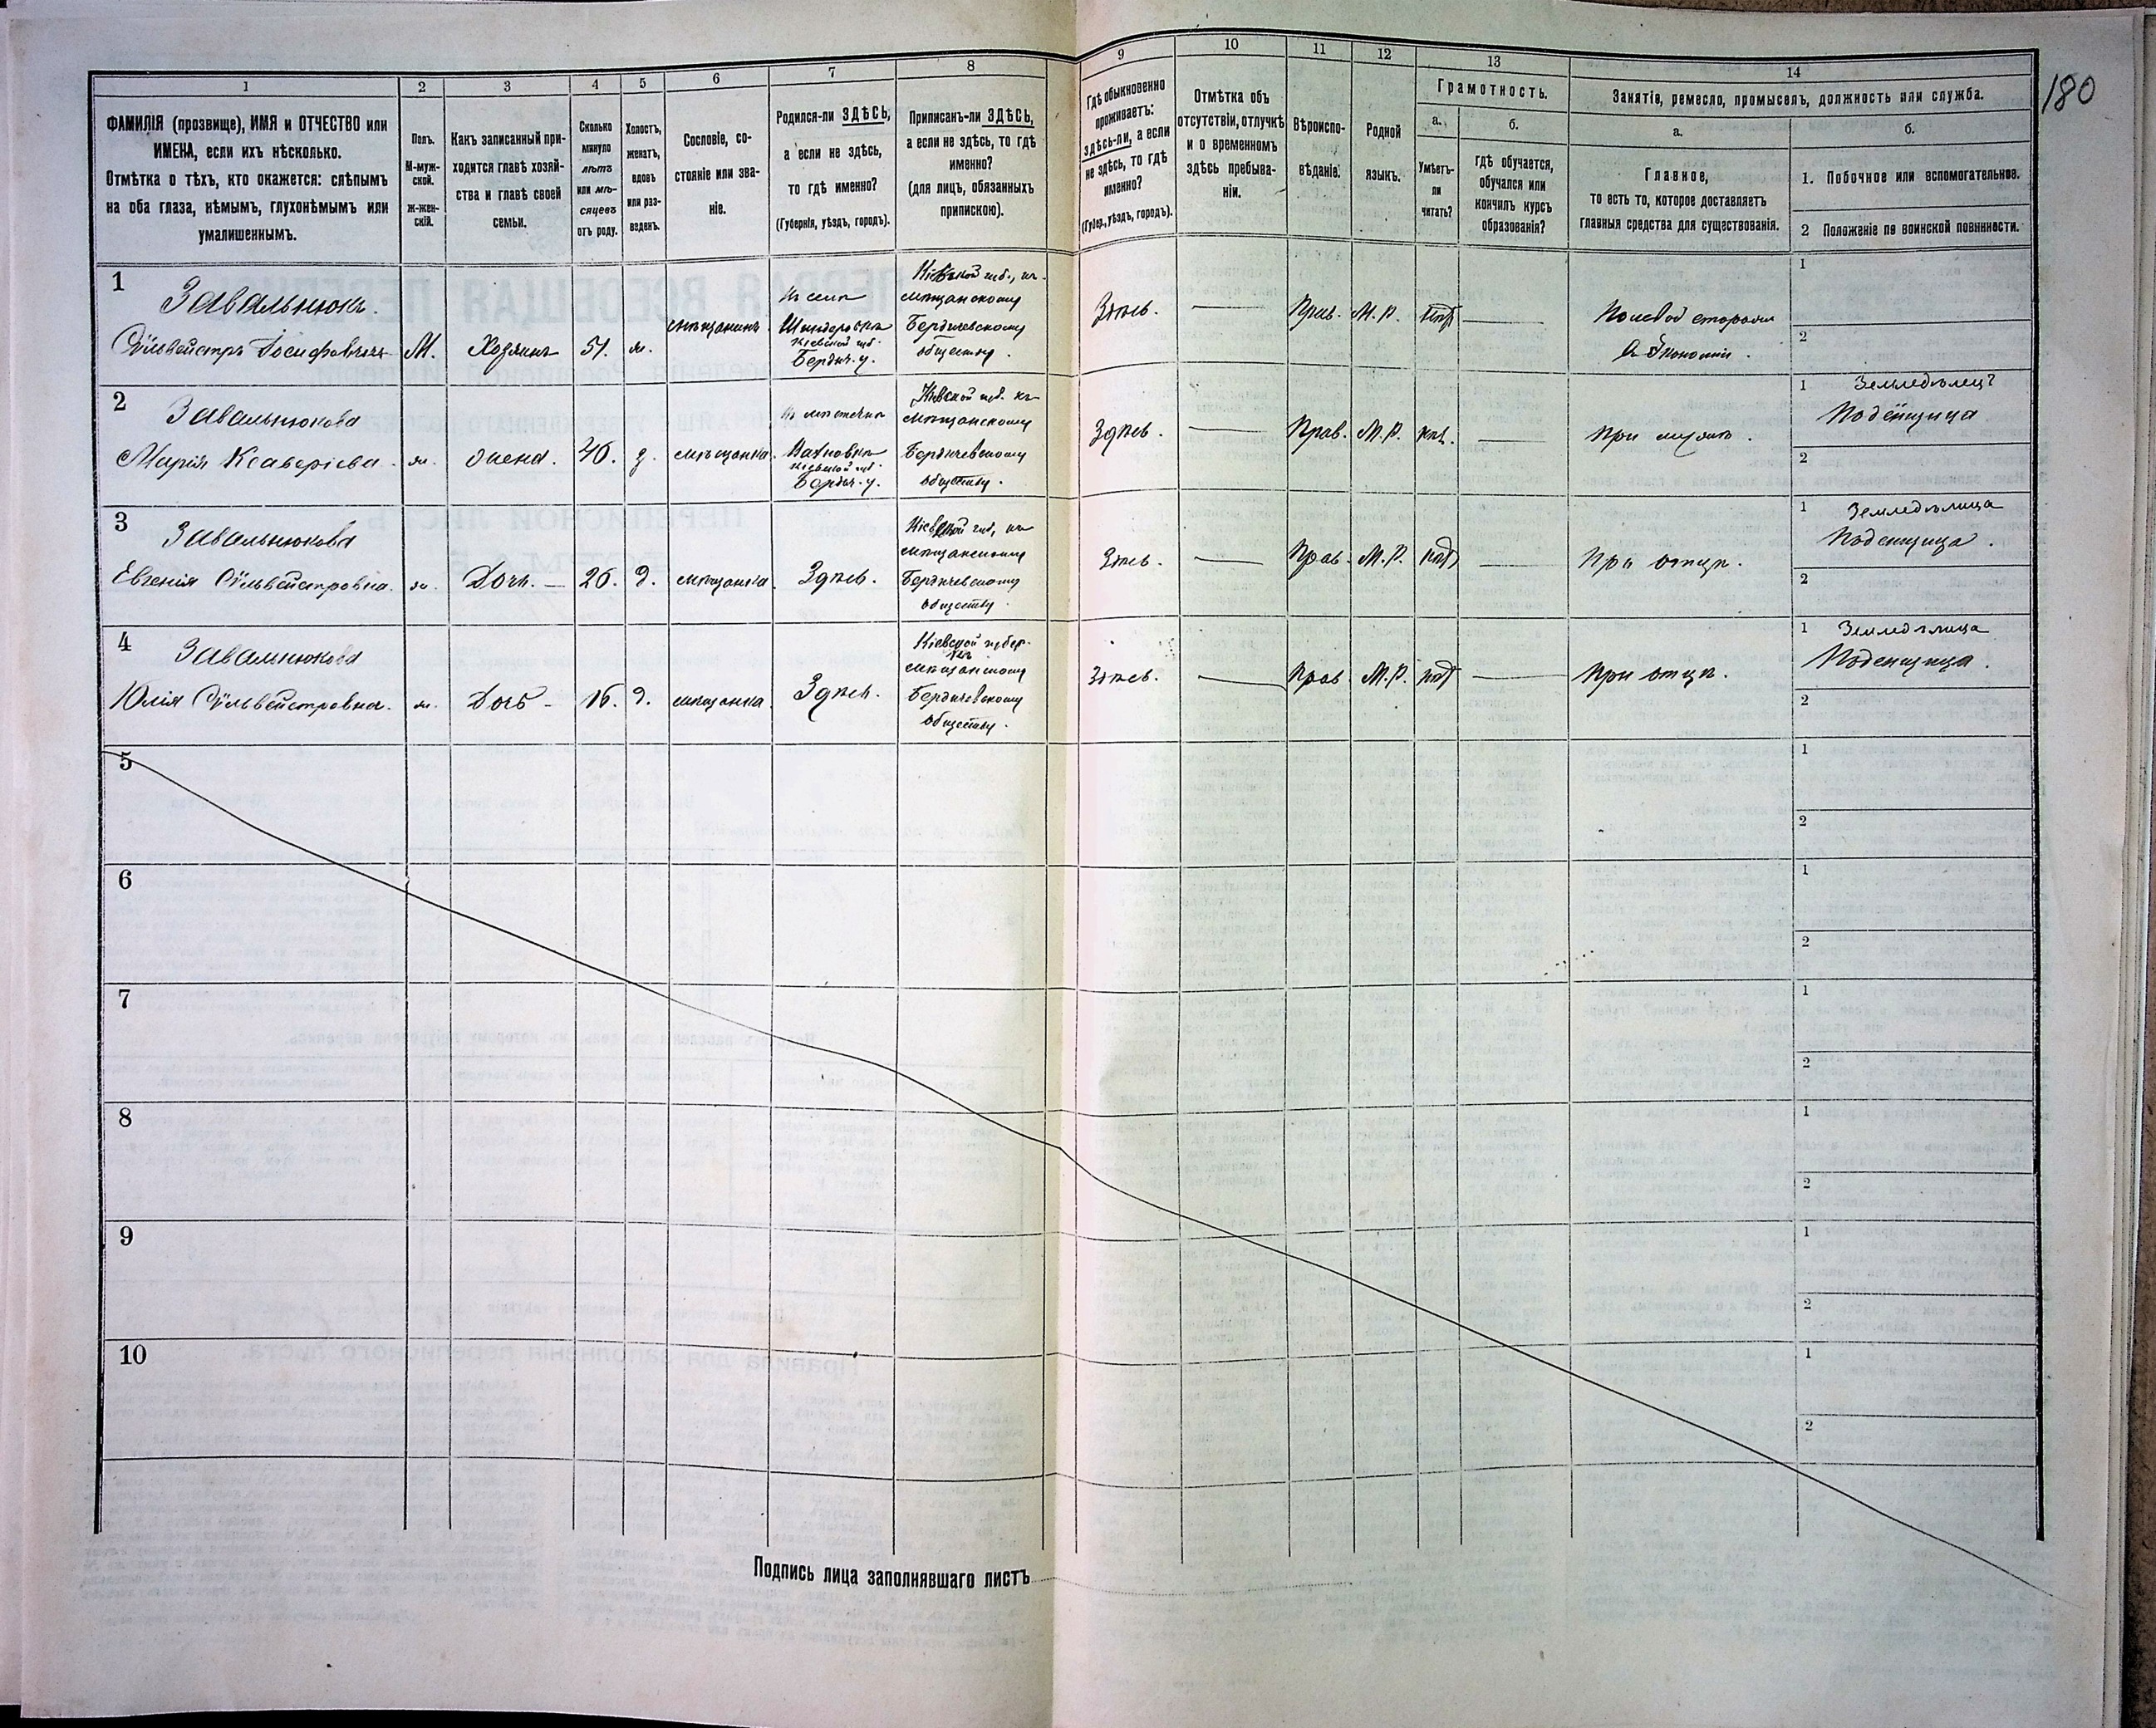 180
1 2 3 4 5 6 7 8 9 10 11 12 13 14
ФАМИЛІЯ (прозвище), ИМЯ и ОТЧЕСТВО или
ИМЕНА, если ихъ нѣсколько.
Отмѣтка о тѣхъ, кто окажется: слѣпымъ
на оба глаза, нѣмымъ, глухонѣмымъ или
умалишеннымъ.
Полъ.
М-муж-
ской.
Ж-жен-
скій.
Какъ записанный при-
ходится главѣ хозяй-
ства и главѣ своей
семьи.
Сколько
минуло
лѣтъ
или мѣ-
сяцевъ
отъ роду.
Холостъ,
женатъ,
вдовъ
или раз-
веденъ.
Сословіе, со-
стояніе или зва-
ніе.
Родился-ли ЗДѢСЬ,
а если не здѣсь,
то гдѣ именно?
(Губернія, уѣздъ, городъ).
Приписанъ-ли ЗДѢСЬ,
а если не здѣсь, то гдѣ
именно?
(для лицъ, обязанныхъ
припискою).
Гдѣ обыкновенно
проживаетъ:
здѣсь-ли, а если
не здѣсь, то гдѣ
именно?
(Губер., уѣздъ, городъ).
Отмѣтка объ
отсутствіи, отлучкѣ
и о временномъ
здѣсь пребыва-
ніи.
Вѣроиспо-
вѣданіе.
Родной
языкъ.
Грамотность.
а.
Умѣетъ-
ли
читать?
б.
гдѣ обучается,
обучался или
кончилъ курсъ
образованія?
Занятіе, ремесло, промыселъ, должность или служба.
а.
Главное,
то есть то, которое доставляетъ
главныя средства для существованія.
б.
1. Побочное или вспомогательное.
2 Положеніе по воинской повинности.
1
Завальнюкъ.
Сильвейстръ Іосифовичъ
М.
Хозяинъ
51.
ж.
мѣщанинъ
Кіевской губ.
Бердич. у.
Кіевской губ., къ
мѣщанскому
Бердичевскому
обществу.
Здѣсь.
Прав.
М. Р.
1
2
2
Завальнюкова
Марія Ксаверіева.
ж.
жена.
46.
з.
мѣщанка.
Вахновки
Кіевской губ.
Бердич. у.
Кіевской губ. къ
мѣщанскому
Бердичевскому
обществу.
Здѣсь.
Прав.
М. Р.
нѣт.
При мужѣ.
1 Земледѣлец?
Поденщица
2
3
Завальнюкова
Евгенія Сильвейстровна.
ж.
Дочь.
26.
д.
мѣщанка.
Здѣсь.
Кіевской губ., къ
мѣщанскому
Бердичевскому
обществу.
Здѣсь.
Прав.
М. Р.
нѣт
При отцѣ.
1 Земледѣлица
Поденщица.
2
4
Завальнюкова
Юлія Сильвейстровна.
ж.
Дочь
16.
д.
мѣщанка.
Здѣсь.
Кіевской губер.
къ
мѣщанскому
Бердичевскому
обществу.
Здѣсь.
Прав
М. Р.
нѣт
При отцѣ.
1 Земледѣлица
Поденщица.
2
5
1
2
6
1
2
7
1
2
8
1
2
9
1
2
10
1
2
Подпись лица заполнявшаго листъ